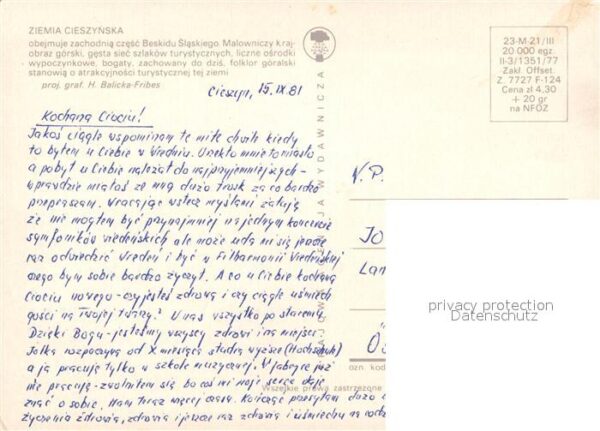 ZIEMIA CIESZYŃSKA
obejmuje zachodnią część Beskidu Śląskiego. Malowniczy kraj-
obraz górski, gęsta sieć szlaków turystycznych, liczne ośrodki
wypoczynkowe, bogaty, zachowany do dziś, folklor góralski
stanowią o atrakcyjności turystycznej tej ziemi
proj. graf. H. Balicka-Fribes
23-M-21/III
20.000 egz.
II-3/1351/77
Zakł. Offset.
Z. 7727 F-124
Cena zł 4,30
+ 20 gr
na NFOZ
Cieszyn, 15.IX 81
Kochana Ciociu!
Jakoś ciągle wspominam te miłe chwile kiedy
to byłem u Ciebie w Wiedniu. Urzekło mnie to miasto
a pobyt u Ciebie należał do najprzyjemniejszych -
wprawdzie miałaś ze mną dużo trosk za co bardzo
przepraszam. Wracając wstecz myślami żałuję
że nie mogłem być przynajmniej na jednym koncercie
symfoników wiedeńskich ale może uda mi się jeszcze
raz odwiedzić Wiedeń i być w Filharmonii Wiedeńskiej
czego bym sobie bardzo życzył. A co u Ciebie kochana
Ciociu nowego - czy jesteś zdrowa i czy ciągle uśmiech
gości na Twojej twarzy? U nas wszystko po staremu.
Dzięki Bogu - jesteśmy wszyscy zdrowi i na miejscu.
Jolka rozpoczyna od X miesiąca studia wyższe (Hochschule)
a ja pracuję tylko w szkole muzycznej. W fabryce już
nie pracuję - zwolniłem się bo coś mi moje serce daje
znać o sobie. Mam teraz więcej czasu. Kończąc przesyłam dużo
życzenia zdrowia, zdrowia i jeszcze raz zdrowia i uśmiechu na
W.P.
Jo
Lan
Ö
ozn. kod
Wszelkie prawa zastrzeżone
KRAJOWA AGENCJA WYDAWNICZA
privacy protection
Datenschutz